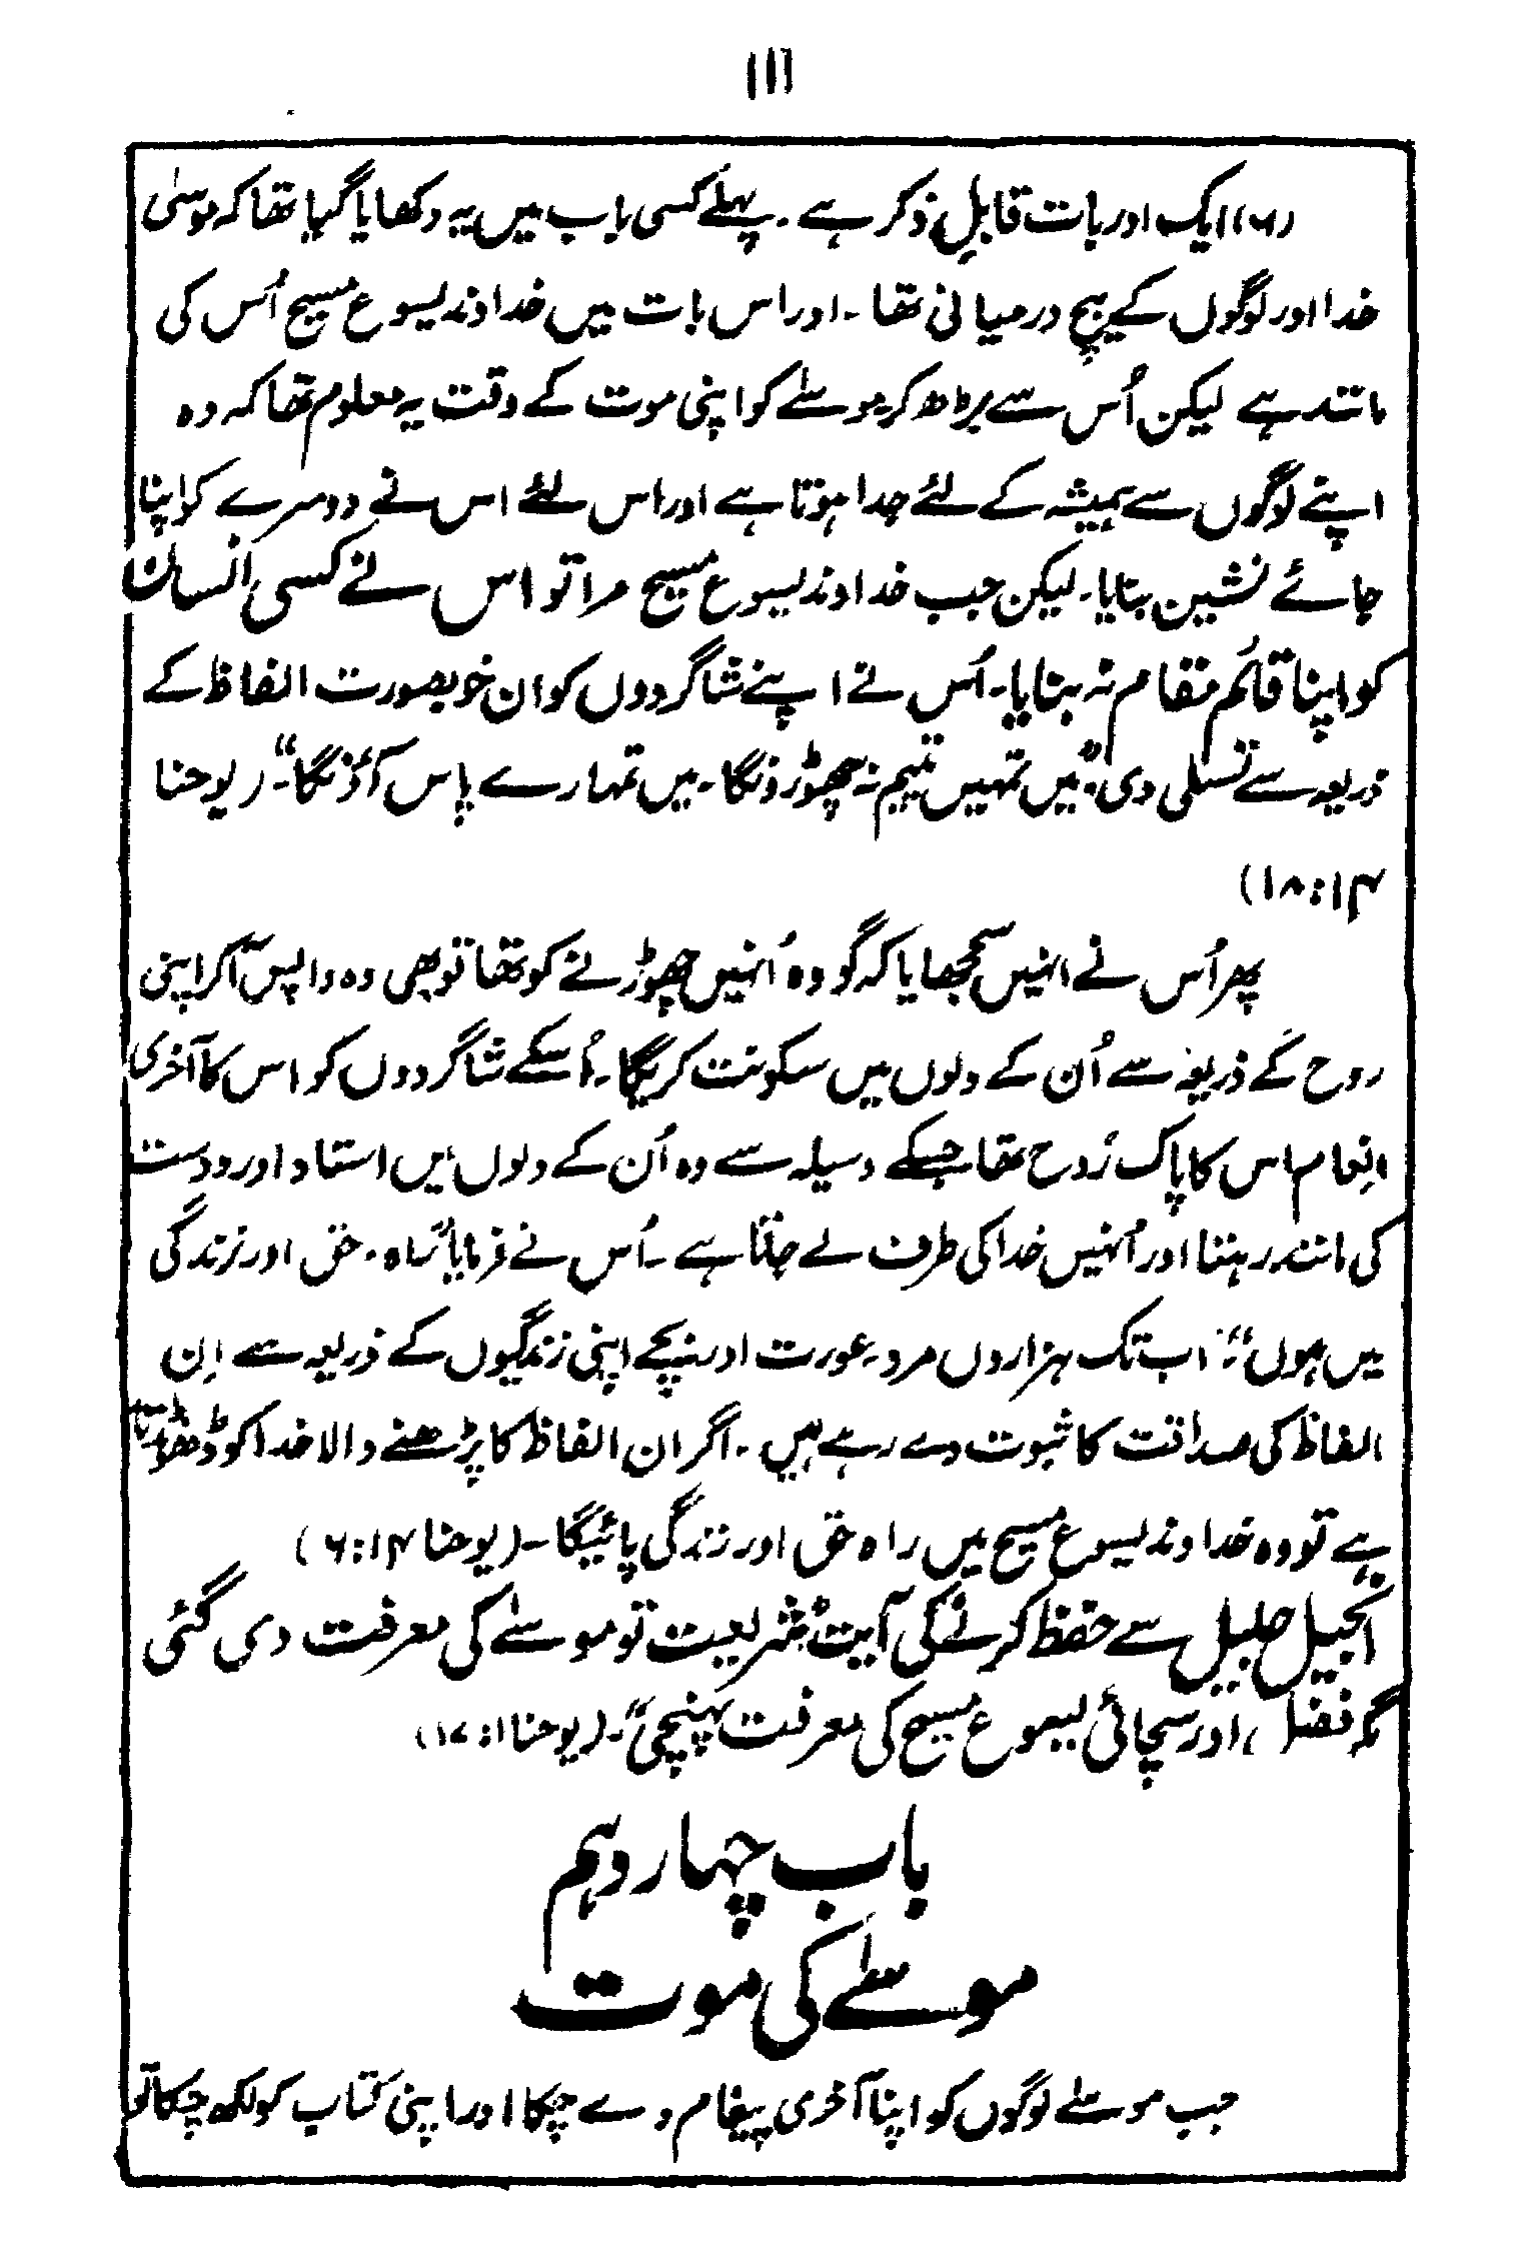 ۱۱۱
(۶) ایک اور بات قابلِ ذکر ہے۔ پہلے کسی باب میں یہ دکھایا گیا تھا کہ موسیٰ
خدا اور لوگوں کے بیچ درمیانی تھا۔ اور اس بات میں خداوند یسوع مسیح اُس کی
مانند ہے لیکن اُس سے بڑھ کر موسےٰ کو اپنی موت کے وقت یہ معلوم تھا کہ وہ
اپنے لوگوں سے ہمیشہ کے لئے جدا ہوتا ہے اور اس لئے اس نے دوسرے کو اپنا
جائے نشین بنایا۔ لیکن جب خداوند یسوع مسیح مرا تو اس نے کسی انسان
کو اپنا قائم مقام نہ بنایا۔ اُس نے اپنے شاگردوں کو ان خوبصورت الفاظ کے
ذریعہ سے تسلی دی۔ "میں تمہیں یتیم نہ چھوڑونگا۔ میں تمہارے پاس آؤنگا"۔ (یوحنا
۱۴:۱۸)
پھر اُس نے انہیں سمجھایا کہ گو وہ اُنہیں چھوڑنے کو تھا تو بھی وہ واپس آکر اپنی
روح کے ذریعہ سے اُن کے دلوں میں سکونت کریگا۔ اُسکے شاگردوں کو اس کا آخری
انِعام اس کا پاک رُوح تھا جسکے وسیلہ سے وہ اُن کے دلوں میں استاد اور دوست
کی مانند رہتا اور اُنہیں خدا کی طرف لے جاتا ہے۔ اُس نے فرمایا "راہ۔ حق اور زندگی
میں ہوں"۔ اب تک ہزاروں مرد۔ عورت اور بچے اپنی زندگیوں کے ذریعہ سے اِن
الفاظ کی صداقت کا ثبوت دے رہے ہیں۔ اگر ان الفاظ کا پڑھنے والا خدا کو ڈھونڈتا
ہے تو وہ خداوند یسوع مسیح میں راہ حق اور زندگی پائیگا۔ (یوحنا ۱۴:۶)
انجیل جلیل سے حفظ کرنے کی آیت "شریعت تو موسےٰ کی معرفت دی گئی
مگر فضل اور سچائی یسوع مسیح کی معرفت پہنچی"۔ (یوحنا ۱:۱۷)
باب چہاردہم
موسےٰ کی موت
جب موسےٰ لوگوں کو اپنا آخری پیغام دے چکا اور اپنی کتاب کو لکھ چکا تو